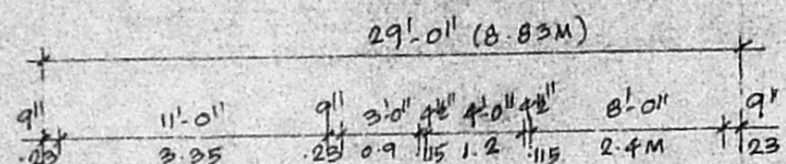 29'-0" (8.83M)
9" 11'-0" 9" 3'-0" 4½" 4'-0" 4½" 8'-0" 9"
.23 3.35 .23 0.9 .115 1.2 .115 2.4M 23